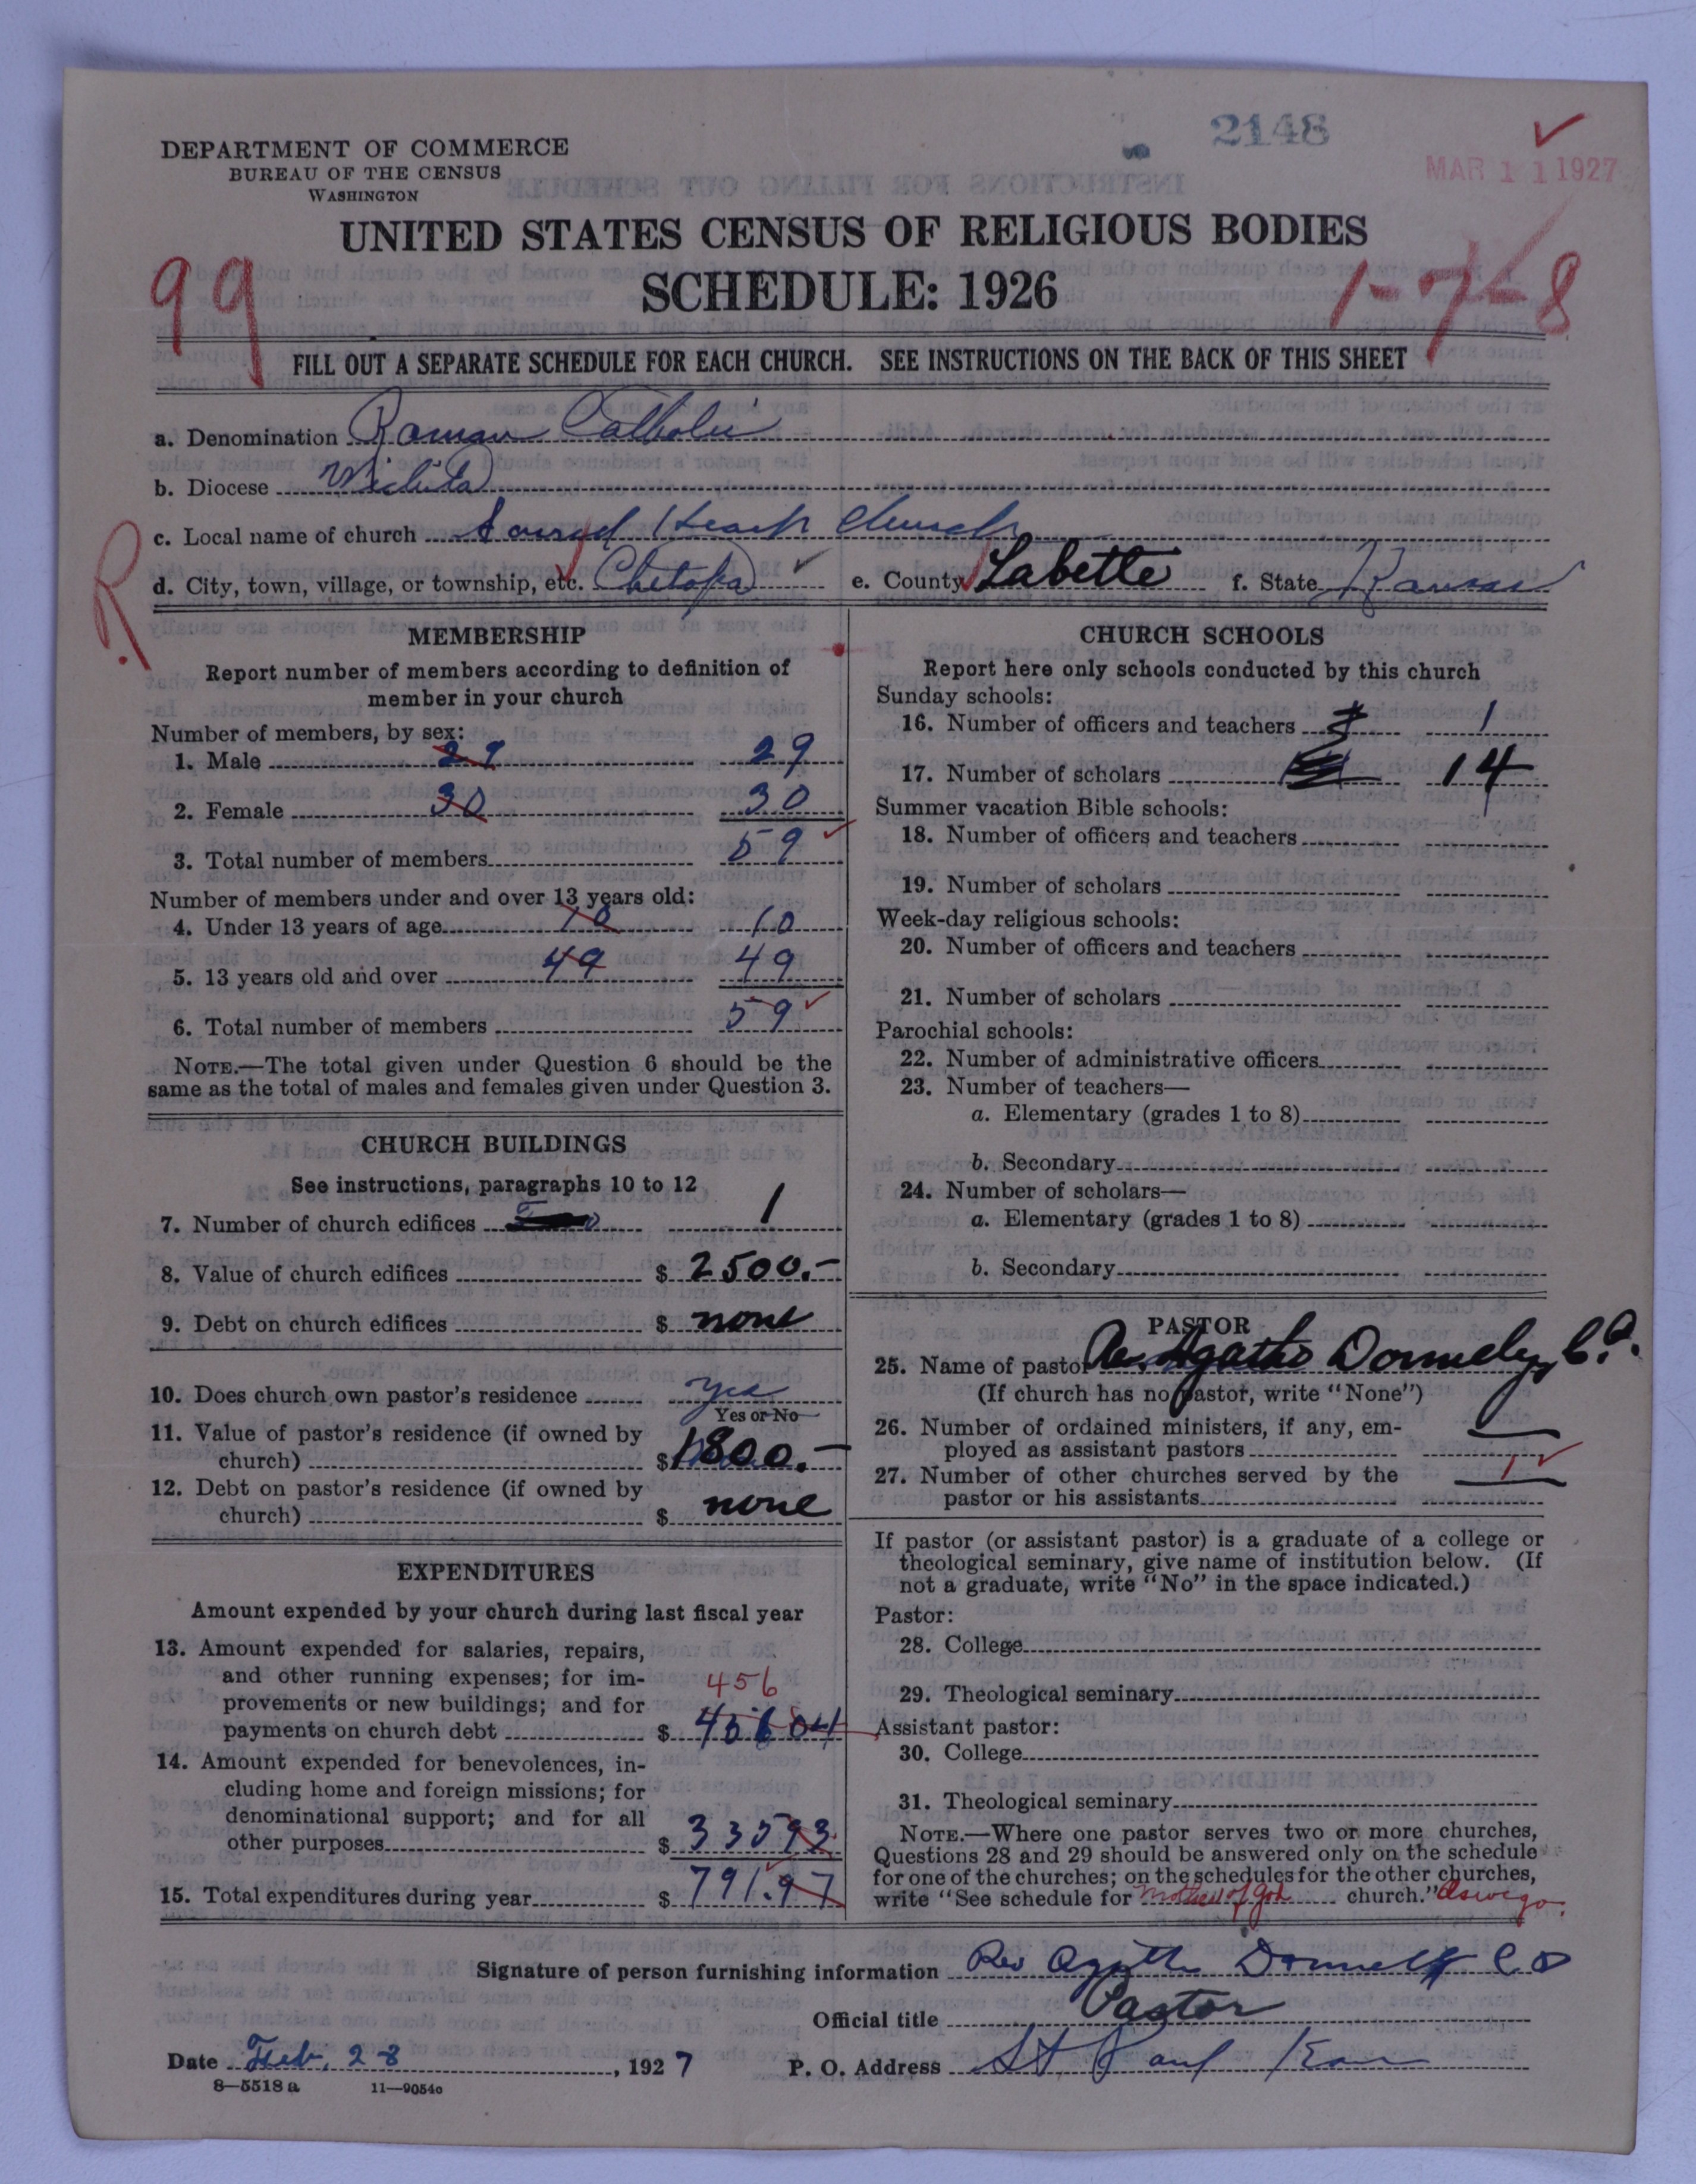 2148
MAR 11 1927
DEPARTMENT OF COMMERCE
BUREAU OF THE CENSUS
WASHINGTON
UNITED STATES CENSUS OF RELIGIOUS BODIES
SCHEDULE: 1926
99
1-7-8
FILL OUT A SEPARATE SCHEDULE FOR EACH CHURCH. SEE INSTRUCTIONS ON THE BACK OF THIS SHEET
a. Denomination Roman Catholic
b. Diocese Wichita
c. Local name of church Sacred Heart Church
R.
d. City, town, village, or township, etc. Chetopa e. County Labette f. State Kansas
MEMBERSHIP
Report number of members according to definition of
member in your church
Number of members, by sex:
1. Male 29 29
2. Female 30 30
3. Total number of members 59
Number of members under and over 13 years old:
4. Under 13 years of age 10 10
5. 13 years old and over 49 49
6. Total number of members 59
NOTE.—The total given under Question 6 should be the
same as the total of males and females given under Question 3.
CHURCH BUILDINGS
See instructions, paragraphs 10 to 12
7. Number of church edifices 1
8. Value of church edifices $ 2500.-
9. Debt on church edifices $ none
10. Does church own pastor's residence yes
Yes or No
11. Value of pastor's residence (if owned by
church) $ 1800.-
12. Debt on pastor's residence (if owned by
church) $ none
EXPENDITURES
Amount expended by your church during last fiscal year
13. Amount expended for salaries, repairs,
and other running expenses; for im-
provements or new buildings; and for
456
payments on church debt $ 456 04
14. Amount expended for benevolences, in-
cluding home and foreign missions; for
denominational support; and for all
other purposes $ 335 93
15. Total expenditures during year $ 791.97
CHURCH SCHOOLS
Report here only schools conducted by this church
Sunday schools:
16. Number of officers and teachers 1
17. Number of scholars 14
Summer vacation Bible schools:
18. Number of officers and teachers
19. Number of scholars
Week-day religious schools:
20. Number of officers and teachers
21. Number of scholars
Parochial schools:
22. Number of administrative officers
23. Number of teachers—
a. Elementary (grades 1 to 8)
b. Secondary
24. Number of scholars—
a. Elementary (grades 1 to 8)
b. Secondary
PASTOR
25. Name of pastor Rev. Agatho Donnelly, C.P.
(If church has no pastor, write "None")
26. Number of ordained ministers, if any, em-
ployed as assistant pastors
27. Number of other churches served by the 1
pastor or his assistants
If pastor (or assistant pastor) is a graduate of a college or
theological seminary, give name of institution below. (If
not a graduate, write "No" in the space indicated.)
Pastor:
28. College
29. Theological seminary
Assistant pastor:
30. College
31. Theological seminary
NOTE.—Where one pastor serves two or more churches,
Questions 28 and 29 should be answered only on the schedule
for one of the churches; on the schedules for the other churches,
write "See schedule for Mother of God church." Oswego.
Signature of person furnishing information Rev Agatho Donnelly C P
Official title Pastor
Date Feb. 28, 1927 P. O. Address St Paul Kan
8—5518 a 11—9054c